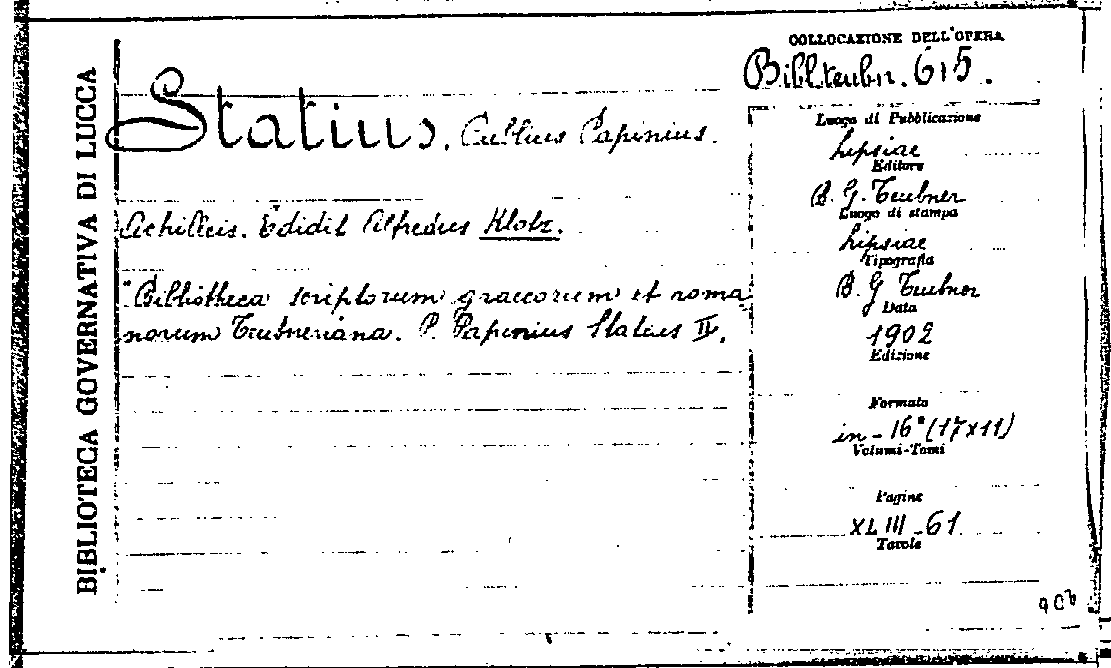 BIBLIOTECA GOVERNATIVA DI LUCCA
COLLOCAZIONE DELL'OPERA
Bibl. teubn. 615.
Statius. Publius Papinius.
Achilleis. Edidit Alfredus Klotz.
"Bibliotheca scriptorum graecorum et roma
norum Teubneriana. P. Papinius Statius II.
Luogo di Pubblicazione
Lipsiae
Editore
B. G. Teubner
Luogo di stampa
Lipsiae
Tipografia
B. G Teubner
Data
1902
Edizione
Formato
in-16° (17x11)
Volumi-Tomi
Pagine
XLIII-61
Tavole